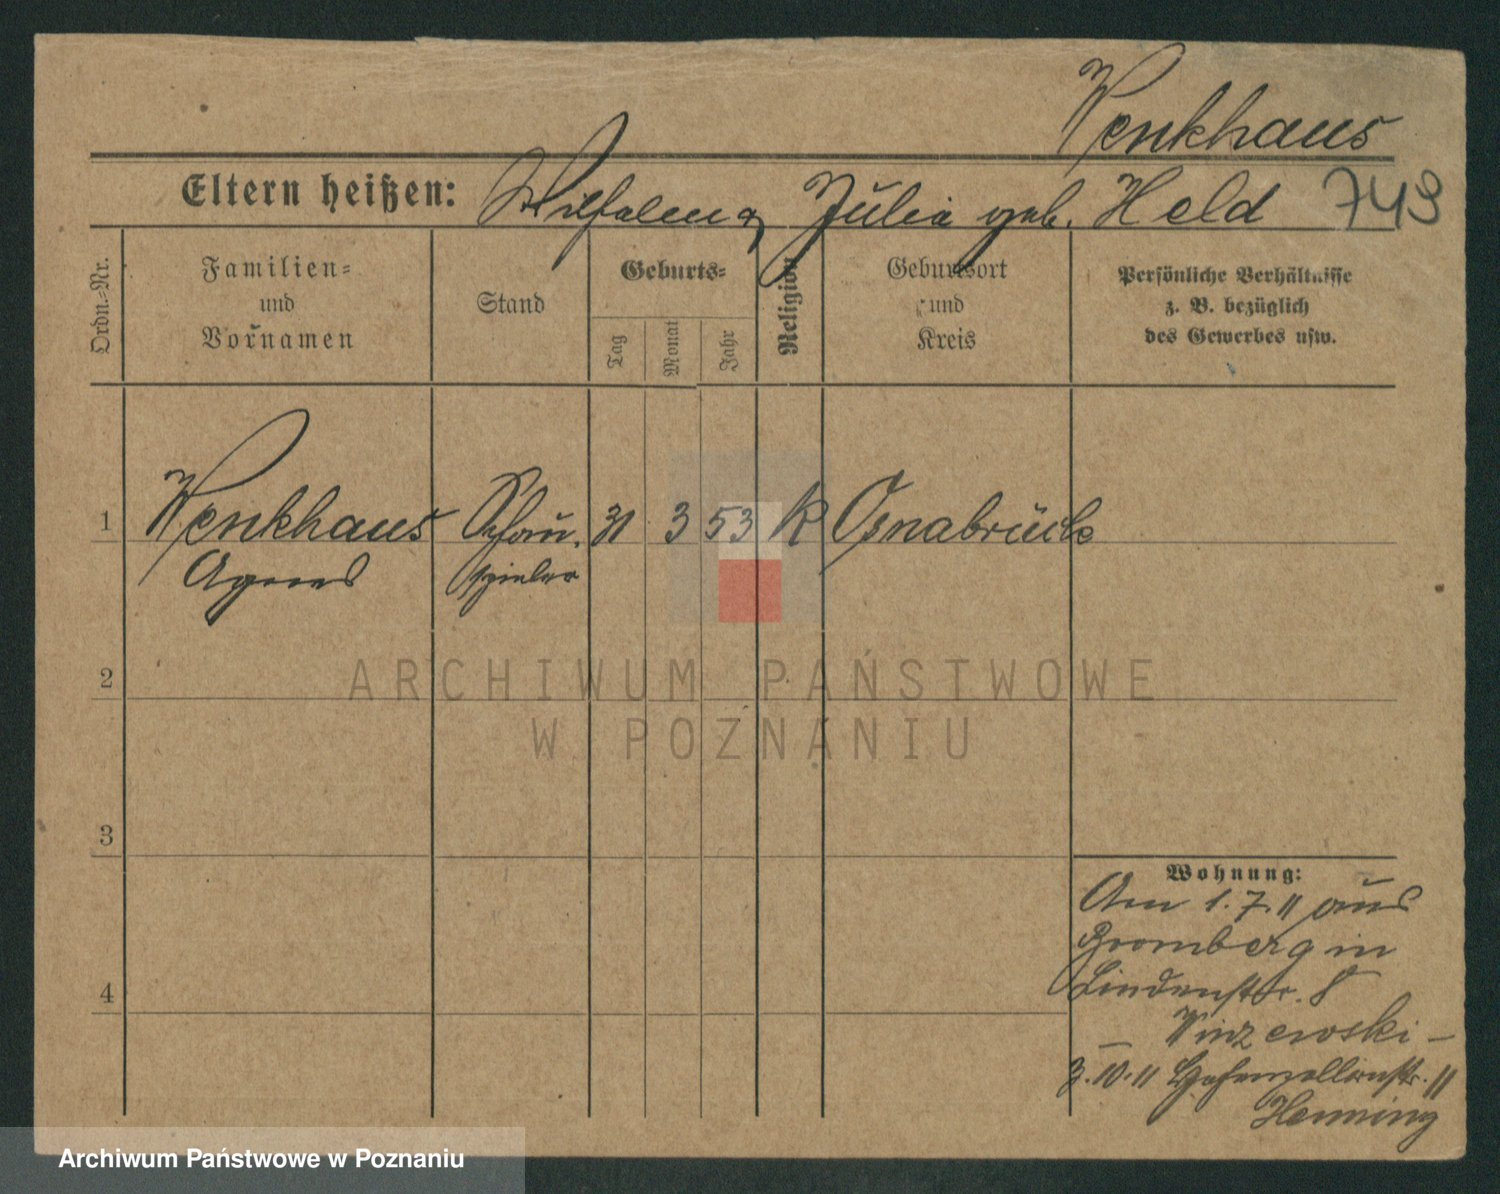 Wenkhaus
Eltern heißen: Wilhelm u. Julia geb. Held 743
Ordn.-Nr.
Familien-
und
Vornamen
Stand
Geburts-
Tag
Monat
Jahr
Religion
Geburtsort
und
Kreis
Persönliche Verhältnisse
z. B. bezüglich
des Gewerbes usw.
1 Wenkhaus Schau- 31 3 53 k Osnabrück
Agnes spieler
ARCHIWUM PAŃSTWOWE
2
W POZNANIU
3
Wohnung:
Am 1.7.11 aus
Bromberg in
4 Lindenstr. 8
3.10.11 Hohenzollernstr. 11
Henning
Archiwum Państwowe w Poznaniu